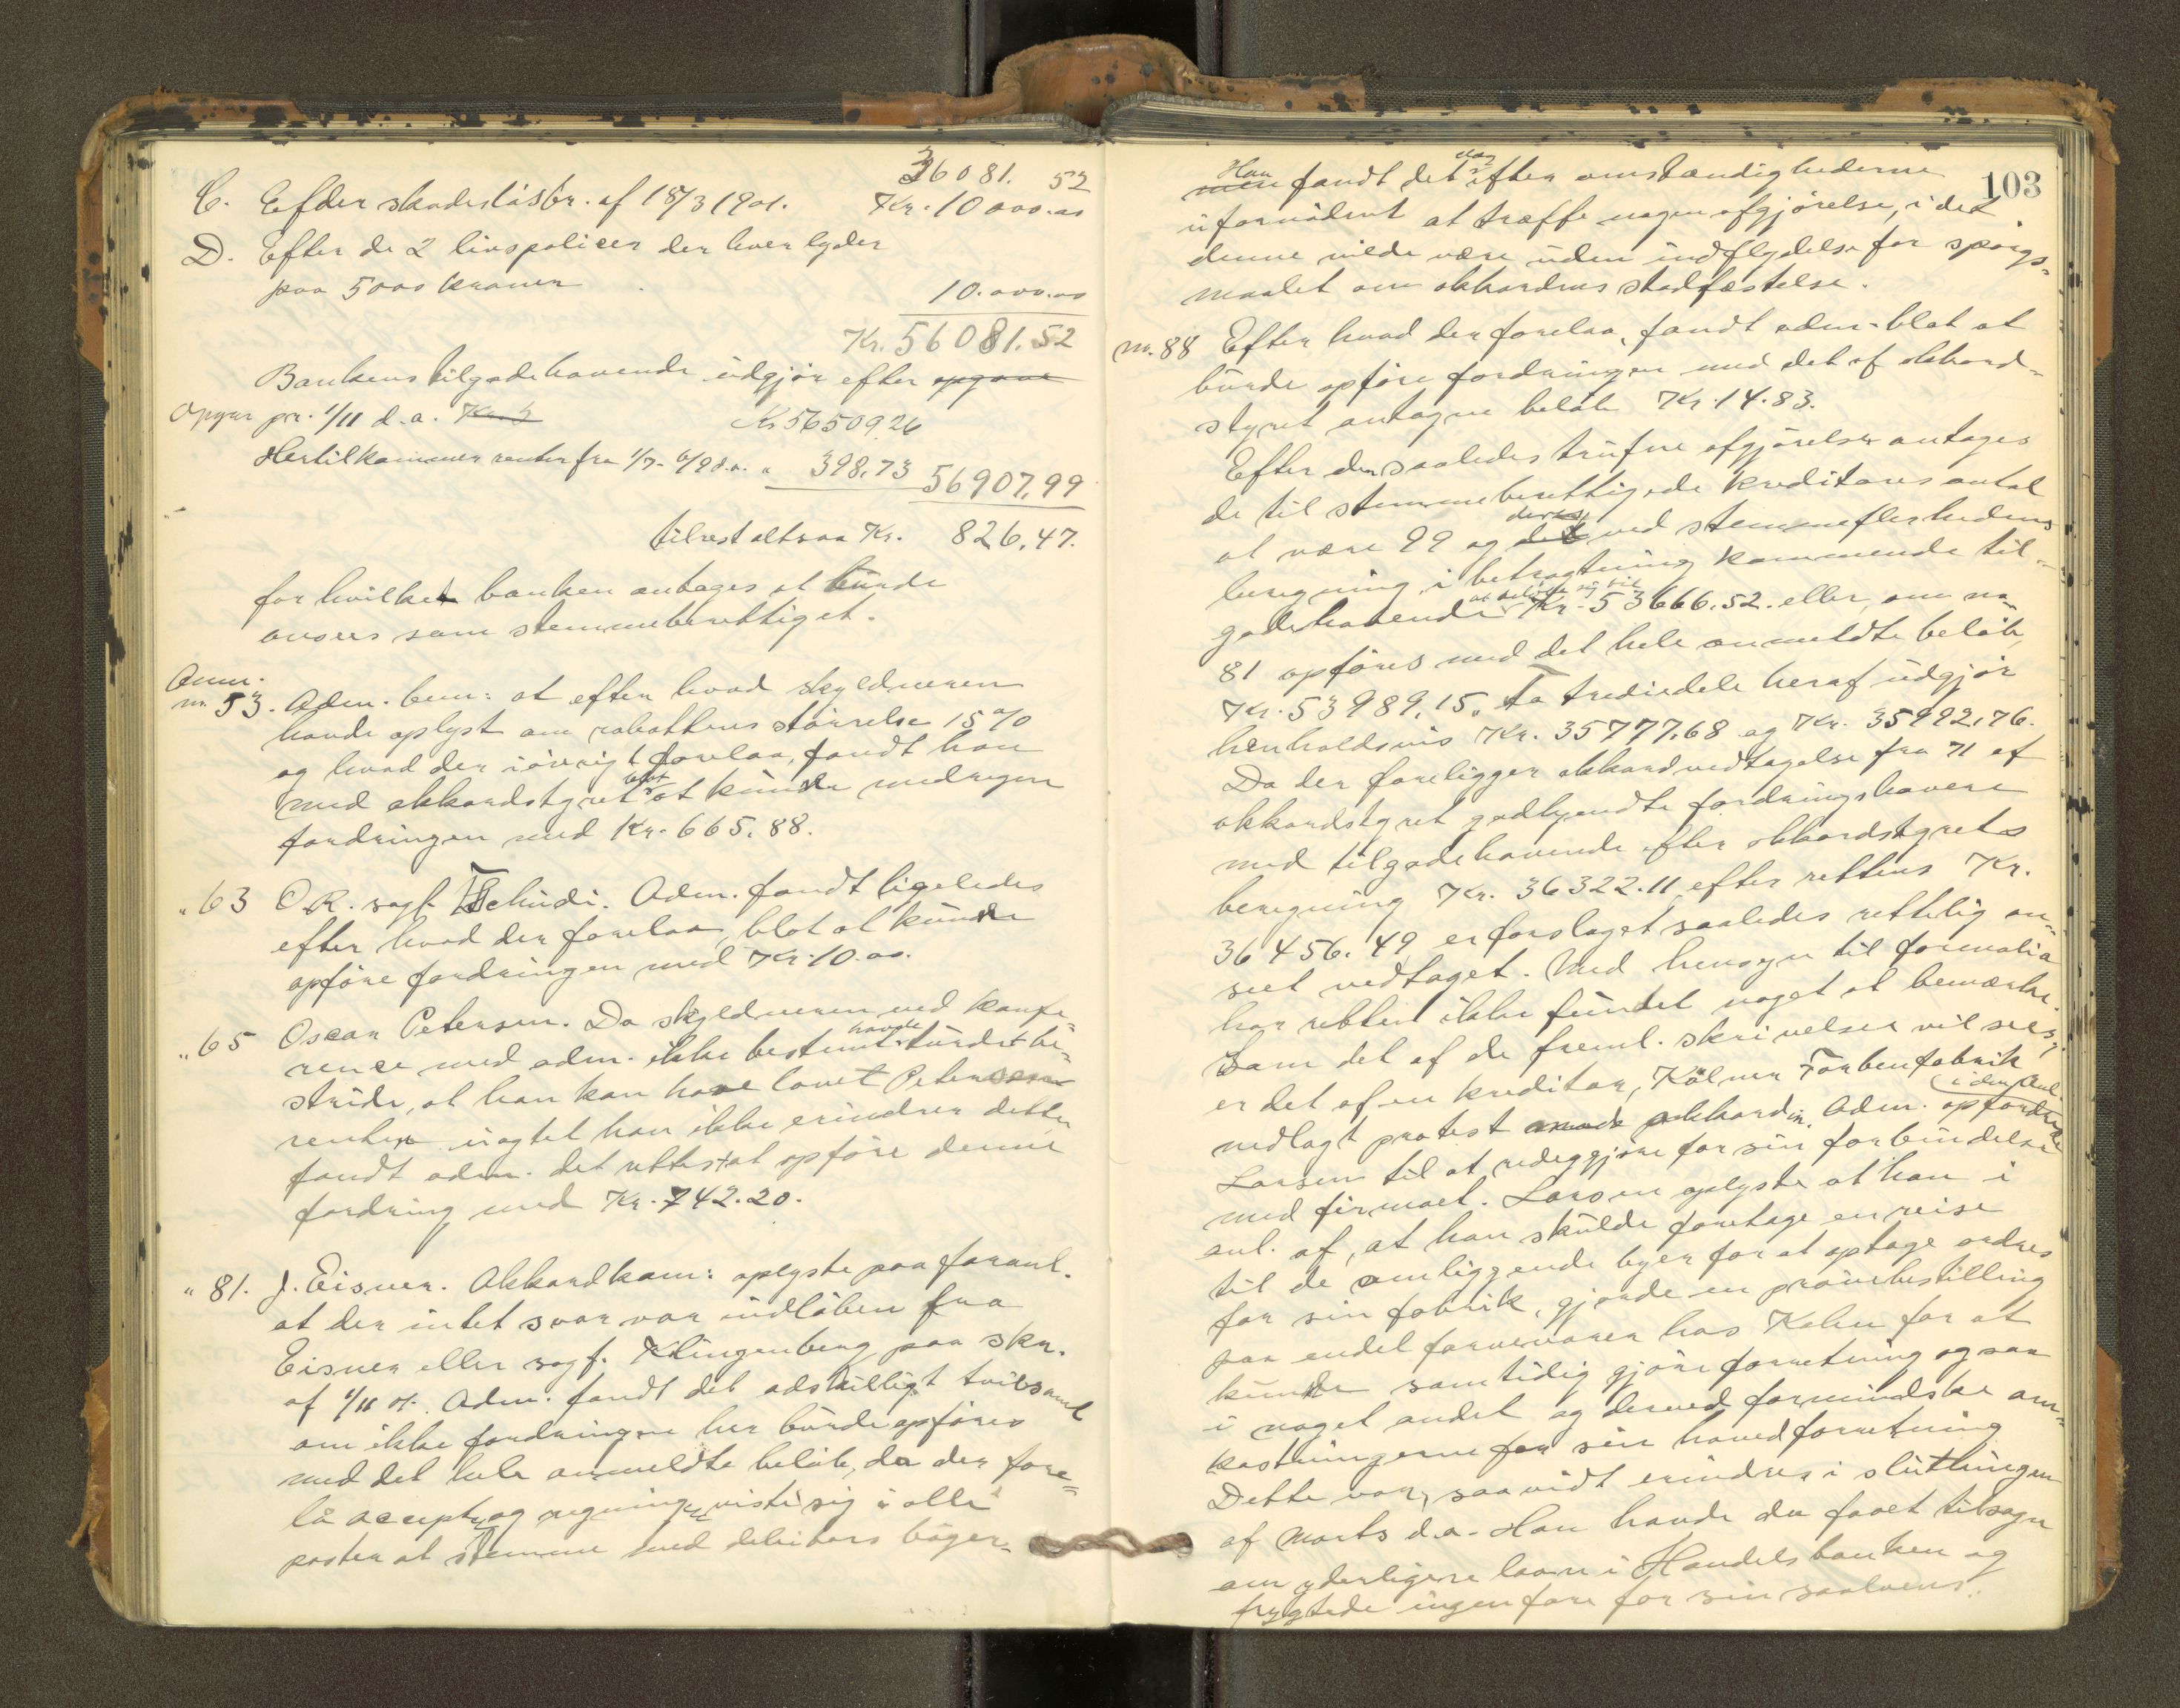 36081. 52
C. Efter skadesløsbr. af 18/3 1901. Kr. 10000.00
D. Efter de 2 livspolicer der hver lyder
paa 5000 kroner 10.000.00
Kr. 56081.52
Bankens tilgodehavende udgjør efter opgave
Opgave pr. 1/11 d.a. Kr. 5 Kr 56509.26
Hertilkommer renter fra 1/7- 6/9 d.a. " 398.73 56907.99
tilrest altsaa Kr. 826.47.
for hvilket banken antages at burde
ansees som stemmeberettiget.
Anm.
nr. 53. Adm. bem: at efter hvad skyldneren
havde oplyst om rabattens størrelse 15%
og hvad der iøvrigt forelaa, fandt han
med akkordstyret blot at kunde medregne
fordringen med Kr. 665.88.
" 63 O.R. sagf. Tschudi. Adm. fandt ligeledes
efter hvad der forelaa, blot at kunde
opføre fordringen med Kr. 10.00.
" 65 Oscar Petersen. Da skyldneren ved konfe-
rence med adm. ikke bestemt havde turdet be-
stride, at han kan have lovet Petersen
renter uagtet han ikke erindrer dette
fandt adm. det rettest at opføre denne
fordring med Kr. 742.20.
" 81. J. Eisner. Akkordkom: oplyste paa foranl.
at der intet svar var indløben fra
Eisner eller sagf. Klingenberg paa skr.
af 1/11 d. Adm. fandt det adskilligt tvilsomt
om ikke fordringen her burde opføres
med det hele anmeldte beløb, da der fore-
lå accepter og regningen viste sig i alle
poster at stemme med debitors bøger.
103
Han
men fandt det dog efter omstændighederne
ufornødent at træffe nogen afgjørelse, i det
denne vilde være uden indflydelse for spørgs-
maalet om akkordens stadfæstelse.
nr. 88 Efter hvad der forelaa, fandt adm. blot at
burde opføre fordringen med det af akkord-
styret antagne beløb Kr. 14.83.
Efter den saaledes trufne afgjørelse antages
de til stemmeberettigede kreditores antal
at være 99 og deres ved stemmeflerhedens
beregning i betragtning kommende til-
godehavende at beløbe sig til Kr. 53666.52. eller, om no
81 opføres med det hele anmeldte beløb,
Kr. 53989.15. To trediedele heraf udgjør
henholdsvis Kr. 35777.68 og Kr. 35992.76.
Da der foreligger akkordvedtagelse fra 71 af
akkordstyret godkjendte fordringshavere
med tilgodehavende efter akkordstyrets
beregning Kr. 36322.11 efter rettens Kr.
36456.49 er forslaget saaledes rettelig an-
seet vedtaget. Med hensyn til formalia
har retten ikke fundet noget at bemærke.
Som det af de freml. skrivelser vil sees,
er det af en kreditor, Kölner Farbenfabrik
nedlagt protest mod akkorden. Adm. opfordrede i den anl.
Larsen til at redegjøre for sin forbindelse
med firmaet. Larsen oplyste at han i
anl. af, at han skulde foretage en reise
til de omliggende byer for at optage ordres
for sin fabrik, gjorde en prøvebestilling
paa endel farvevarer hos Køln for at
kunde samtidig gjøre forretning ogsaa
i noget andet og derved formindske om-
kostningerne for sin hovedforretning
Dette var, saavidt erindres i slutningen
af marts d.a. Han havde da faaet tilsagn
om yderligere laan i Handelsbanken og
frygtede ingen fare for sin solvens.